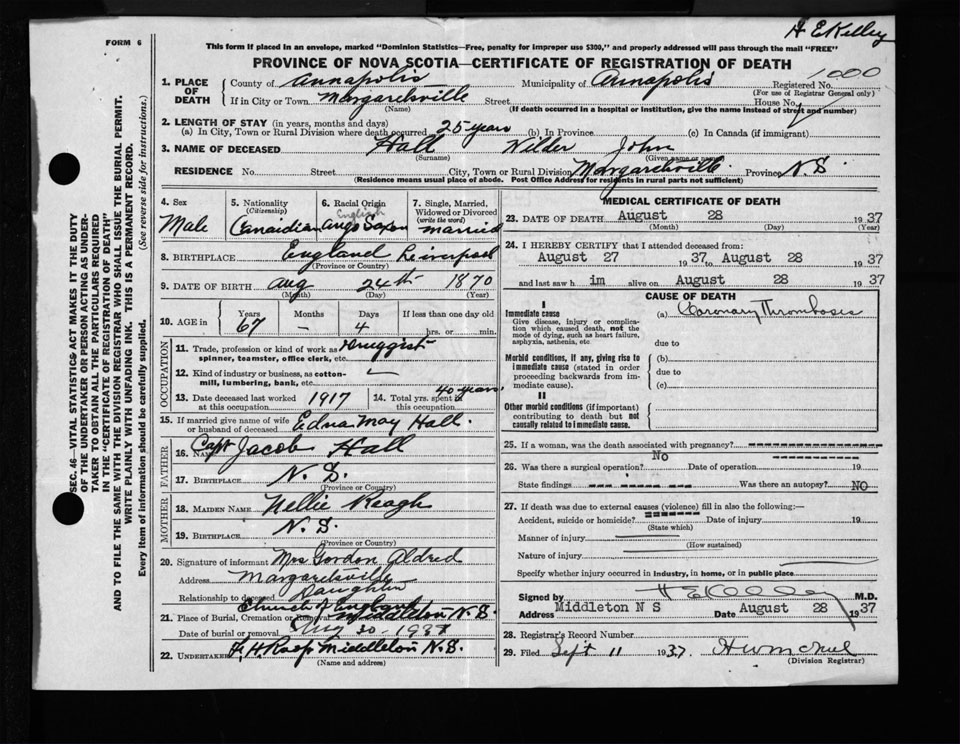 H E Kelley
FORM 6
This form if placed in an envelope, marked "Dominion Statistics—Free, penalty for improper use $300," and properly addressed will pass through the mail "FREE"
PROVINCE OF NOVA SCOTIA—CERTIFICATE OF REGISTRATION OF DEATH
SEC. 46—VITAL STATISTICS ACT MAKES IT THE DUTY
OF THE UNDERTAKER OR PERSON ACTING AS UNDER-
TAKER TO OBTAIN ALL THE PARTICULARS REQUIRED
IN THE "CERTIFICATE OF REGISTRATION OF DEATH"
AND TO FILE THE SAME WITH THE DIVISION REGISTRAR WHO SHALL ISSUE THE BURIAL PERMIT.
WRITE PLAINLY WITH UNFADING INK. THIS IS A PERMANENT RECORD.
Every item of information should be carefully supplied. (See reverse side for instructions.)
1. PLACE OF DEATH
County of Annapolis Municipality of Annapolis Registered No. 1000
(For use of Registrar General only)
If in City or Town Margaretsville Street House No.
(Name) (If death occurred in a hospital or institution, give the name instead of street and number)
2. LENGTH OF STAY (in years, months and days)
(a) In City, Town or Rural Division where death occurred 25 years (b) In Province (c) In Canada (if immigrant)
3. NAME OF DECEASED Hall Wilder John
(Surname) (Given name or names)
RESIDENCE No. Street City, Town or Rural Division Margaretsville Province N.S.
(Residence means usual place of abode. Post Office Address for residents in rural parts not sufficient)
4. Sex Male
5. Nationality (Citizenship) Canaidian
6. Racial Origin English Anglo Saxon
7. Single, Married, Widowed or Divorced (write the word) married
8. BIRTHPLACE England Liverpool
(Province or Country)
9. DATE OF BIRTH Aug 24th 1870
(Month) (Day) (Year)
10. AGE in Years 67 Months — Days 4 If less than one day old hrs. or min.
OCCUPATION
11. Trade, profession or kind of work as spinner, teamster, office clerk, etc. Druggist
12. Kind of industry or business, as cotton-mill, lumbering, bank, etc.
13. Date deceased last worked at this occupation 1917
14. Total yrs. spent in this occupation 40 years
15. If married give name of wife or husband of deceased Edna May Hall.
FATHER
16. Name Capt Jacob Hall
17. BIRTHPLACE N.S.
(Province or Country)
MOTHER
18. MAIDEN NAME Nellie Keagh
19. BIRTHPLACE N.S.
(Province or Country)
20. Signature of informant Mrs Gordon Aldred
Address Margaretsville
Relationship to deceased Daughter
21. Place of Burial, Cremation or Removal Church of England Middleton N.S.
Date of burial or removal Aug 30, 1937
22. UNDERTAKER F. H. Roop Middleton N.S.
(Name and address)
MEDICAL CERTIFICATE OF DEATH
23. DATE OF DEATH August 28 1937
(Month) (Day) (Year)
24. I HEREBY CERTIFY that I attended deceased from:
August 27 1937 to August 28 1937
and last saw him alive on August 28 1937
CAUSE OF DEATH
I
Immediate cause
Give disease, injury or complication which caused death, not the mode of dying, such as heart failure, asphyxia, asthenia, etc.
(a) Coronary Thrombosis
due to
Morbid conditions, if any, giving rise to immediate cause (stated in order proceeding backwards from immediate cause).
(b)
due to
(c)
II
Other morbid conditions (if important) contributing to death but not causally related to immediate cause.
25. If a woman, was the death associated with pregnancy?
26. Was there a surgical operation? No Date of operation 19
State findings Was there an autopsy? NO
27. If death was due to external causes (violence) fill in also the following:—
Accident, suicide or homicide? Date of injury 19
(State which)
Manner of injury
(How sustained)
Nature of injury
Specify whether injury occurred in industry, in home, or in public place
Signed by H E Kelley M.D.
Address Middleton N S Date August 28 1937
28. Registrar's Record Number
29. Filed Sept 11 1937
(Division Registrar)